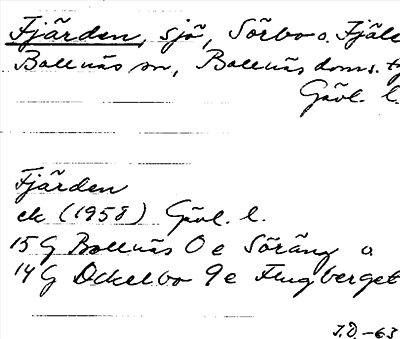 Fjärden, sjö, Sörbo o. Fjäls
Bollnäs sn, Bollnäs doms. tg
Gävl. l.
Fjärden
ek (1958) Gävl. l.
15G Bollnäs 0e Söräng o
14G Ockelbo 9e Flugberget
J.Ö.-63